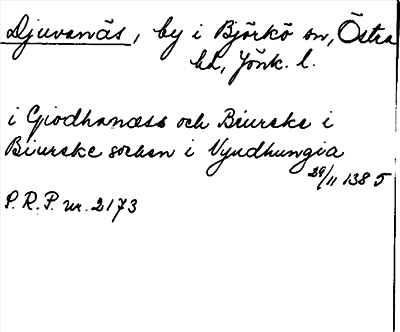 Djuvanäs, by i Björkö sn, Östra
hd, Jönk. l.
i Giodhanæss och Biurske i
Biurske socken i Vyudhungia
29/11 1385
P.R.P. nr. 2173